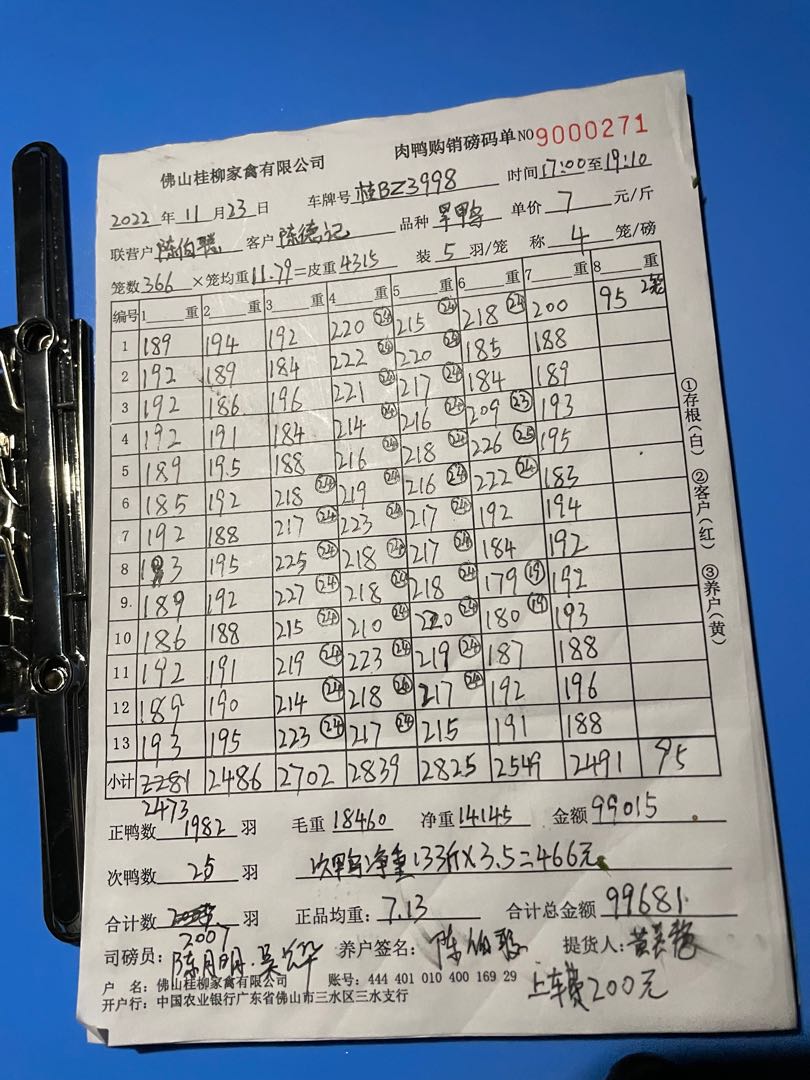 佛山桂柳家禽有限公司 肉鸭购销磅码单 NO 9000271
2022 年 11 月 23 日 车牌号 桂BZ3998 时间 17:00 至 19:10
联营户 陈伯聪 客户 陈德记 品种 旱鸭 单价 7 元/斤
笼数 366 ×笼均重 11.79 =皮重 4315 装 5 羽/笼 称 4 笼/磅
编号 1 重 2 重 3 重 4 重 5 重 6 重 7 重 8 重
1 189 194 192 220 24 215 24 218 24 200 95 2笼
2 192 189 184 222 24 220 24 185 188
3 192 186 196 221 24 217 24 184 189
4 192 191 184 214 24 216 24 209 23 193
5 189 19.5 188 216 24 218 24 226 25 195
6 185 192 218 24 219 24 216 24 222 24 183
7 192 188 217 24 223 24 217 24 192 194
8 193 195 225 24 218 24 217 24 184 192
9. 189 192 227 24 218 24 218 24 179 19 192
10 186 188 215 24 210 24 220 24 180 19 193
11 192 191 219 24 223 24 219 24 187 188
12 189 190 214 24 218 24 217 24 192 196
13 193 195 223 24 217 24 215 191 188
小计 2281 2486 2702 2839 2825 2549 2491 95
2473
正鸭数 1982 羽 毛重 18460 净重 14145 金额 99015
次鸭数 25 羽 次鸭净重133斤×3.5=466元
合计数 羽 正品均重: 7.13 合计总金额 99681.
2007
司磅员: 陈月明 养户签名: 陈伯聪 提货人:
户 名: 佛山桂柳家禽有限公司 账号: 444 401 010 400 169 29
开户行: 中国农业银行广东省佛山市三水区三水支行
上车费200元
①存根(白) ②客户(红) ③养户(黄)